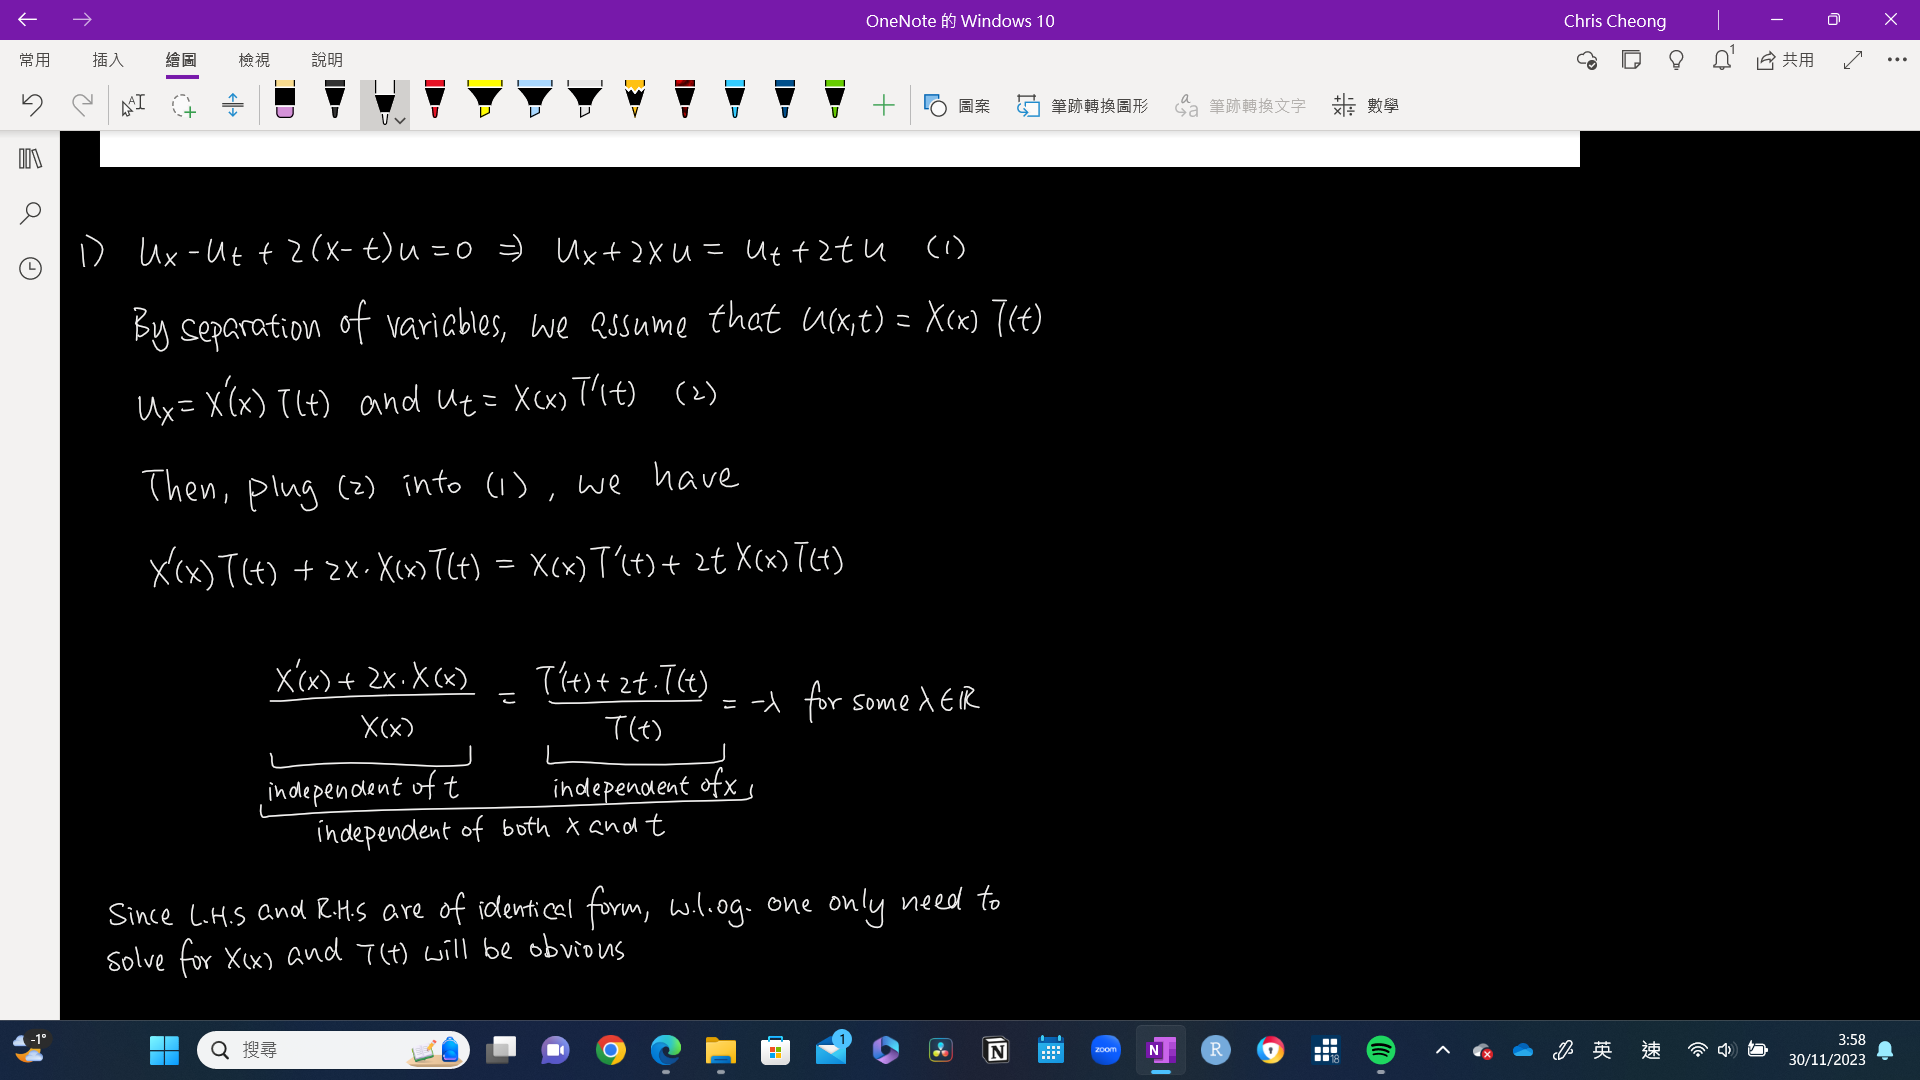 OneNote 的 Windows 10
Chris Cheong
常用 插入 繪圖 檢視 說明
1
共用
圖案 筆跡轉換圖形 筆跡轉換文字 數學
1) u_x - u_t + 2(x-t)u = 0 ⇒ u_x + 2xu = u_t + 2tu (1)
By separation of variables, we assume that u(x,t) = X(x) T(t)
u_x = X'(x) T(t) and u_t = X(x) T'(t) (2)
Then, plug (2) into (1), we have
X'(x) T(t) + 2x · X(x) T(t) = X(x) T'(t) + 2t X(x) T(t)
X'(x) + 2x · X(x) / X(x) = T'(t) + 2t · T(t) / T(t) = -λ for some λ ∈ ℝ
independent of t independent of x
independent of both x and t
Since L.H.S and R.H.S are of identical form, w.l.og. one only need to
solve for X(x) and T(t) will be obvious
-1°
搜尋
1
zoom
N
R
18
英 速
3:58
30/11/2023